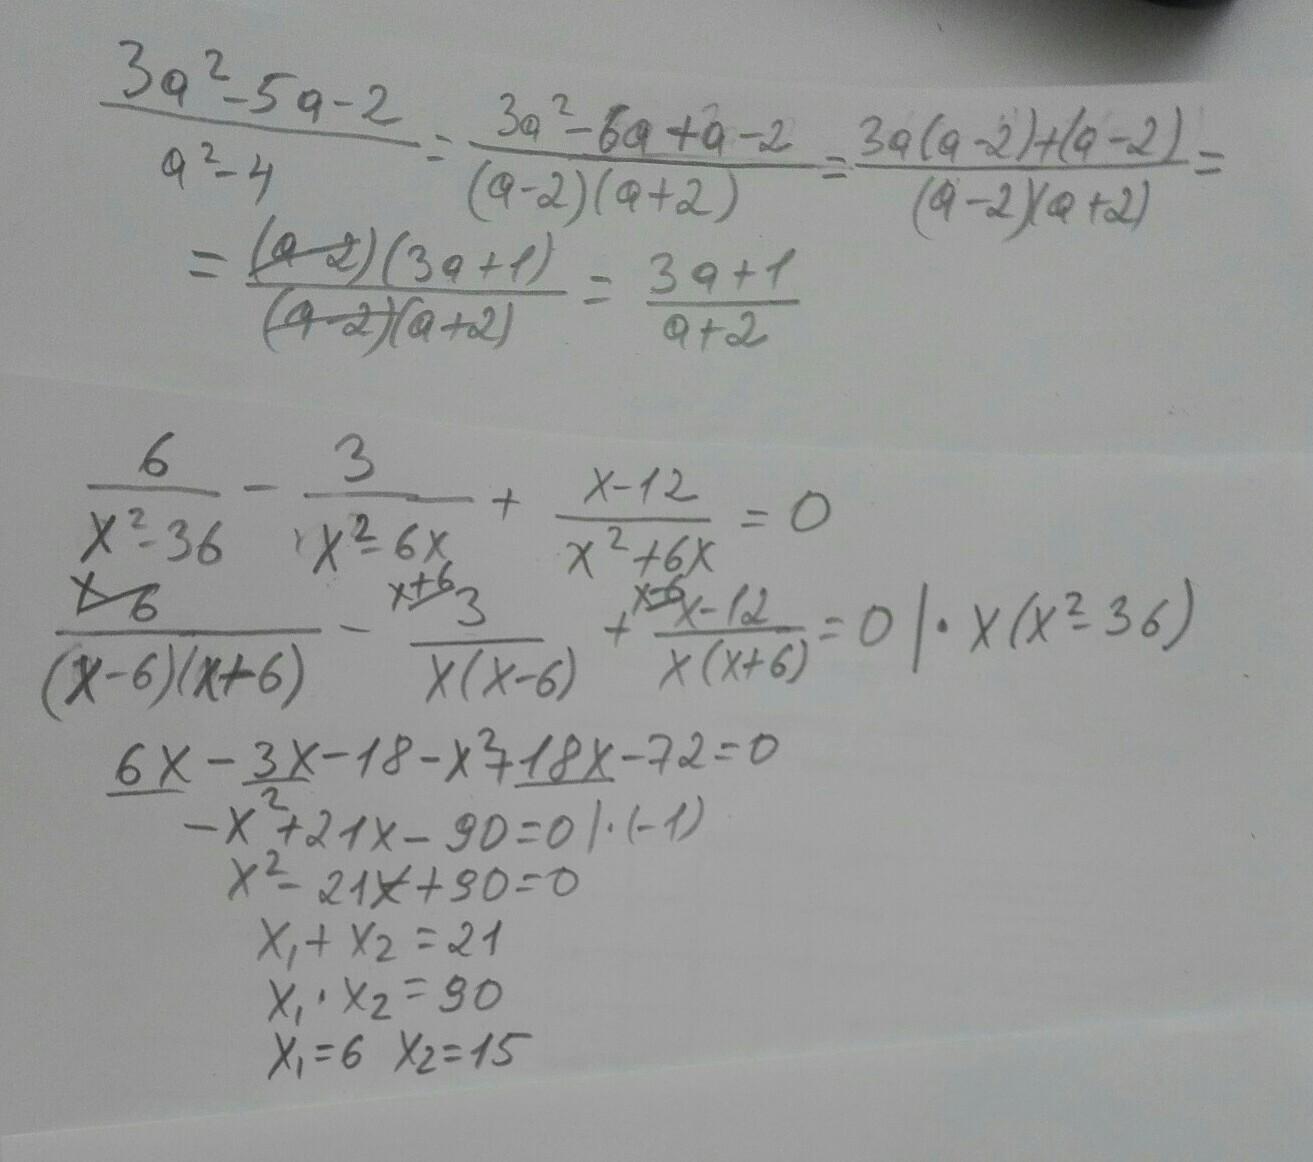 (3a²-5a-2)/(a²-4) = (3a²-6a+a-2)/((a-2)(a+2)) = (3a(a-2)+(a-2))/((a-2)(a+2)) =
= ((a-2)(3a+1))/((a-2)(a+2)) = (3a+1)/(a+2)
6/(x²-36) - 3/(x²-6x) + (x-12)/(x²+6x) = 0
x 6/((x-6)(x+6)) - x+6 3/(x(x-6)) + x-6 x-12/(x(x+6)) = 0 |· x(x²-36)
6x - 3x - 18 - x² + 18x - 72 = 0
-x² + 21x - 90 = 0 |·(-1)
x² - 21x + 90 = 0
x₁ + x₂ = 21
x₁ · x₂ = 90
x₁ = 6 x₂ = 15